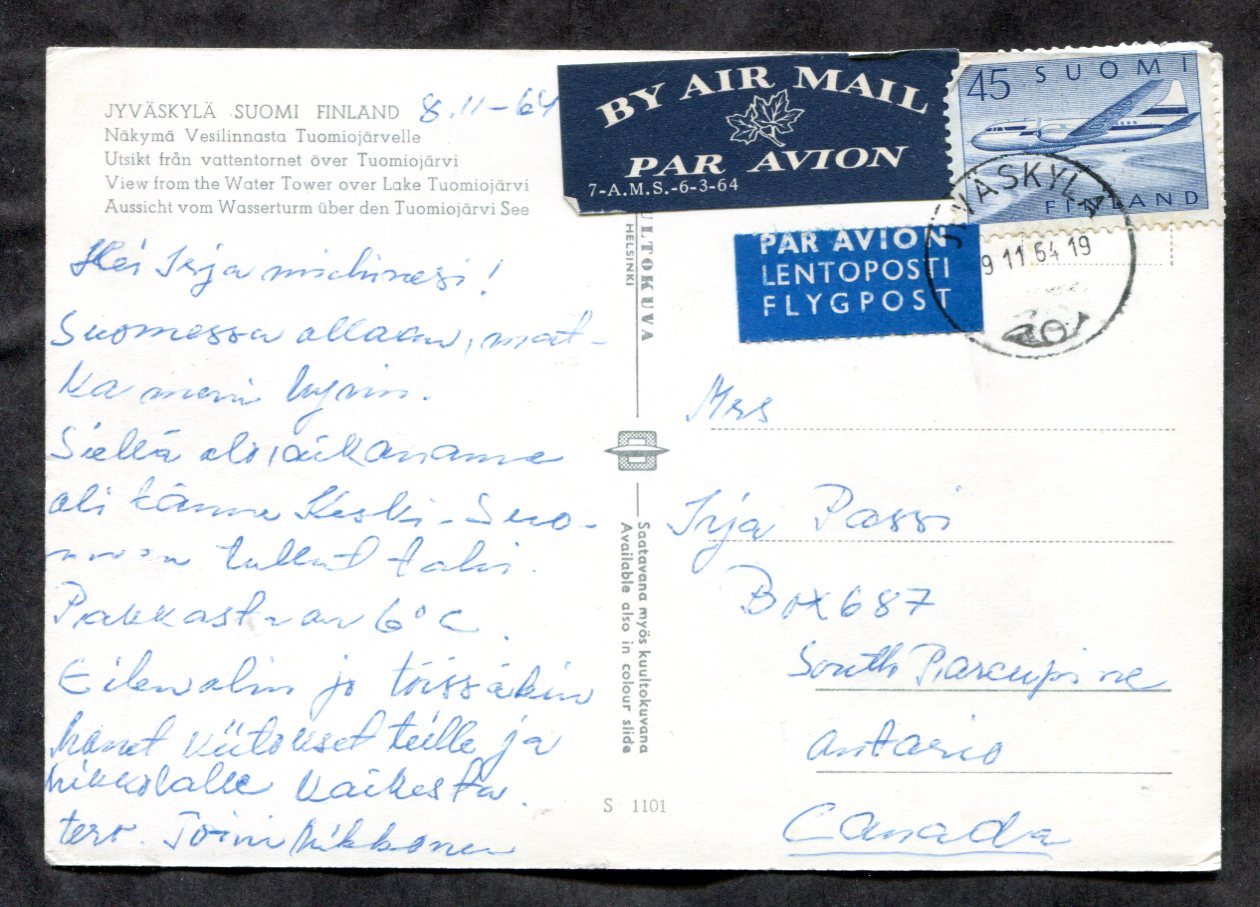 JYVÄSKYLÄ SUOMI FINLAND 8.11-64
Näkymä Vesilinnasta Tuomiojärvelle
Utsikt från vattentornet över Tuomiojärvi
View from the Water Tower over Lake Tuomiojärvi
Aussicht vom Wasserturm über den Tuomiojärvi See
Hei Irja
Suomessa ollaan, mat-
ka meni hyvin.
Siellä oloaikanamme
oli tänne Keski-Suo-
tullut talvi.
Pakkasta on 6°C.
Eilen olin jo töissäkin
monet kiitokset teille ja
Mikkolalle kaikesta.
terv. Toini Mikkonen
BY AIR MAIL
PAR AVION
7-A.M.S.-6-3-64
45 SUOMI
FINLAND
PAR AVION
LENTOPOSTI
FLYGPOST
JYVÄSKYLÄ
9 11.64 19
ULTOKUVA
HELSINKI
Saatavana myös kuultokuvana
Available also in colour slide
S 1101
Mrs
Irja Passi
Box 687
South Porcupine
Ontario
Canada